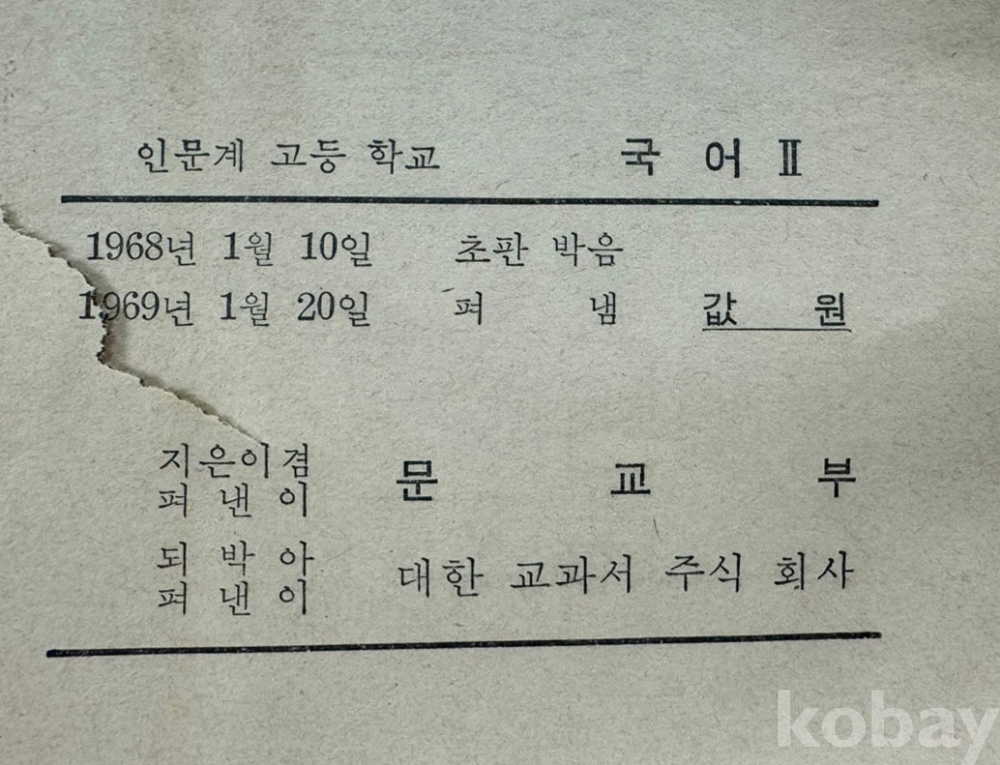 인문계 고등 학교 국 어 Ⅱ
1968년 1월 10일 초판 박음
1969년 1월 20일 펴 냄 값 원
지은이겸
펴 낸 이
문 교 부
되 박 아
펴 낸 이
대한 교과서 주식 회사
kobay